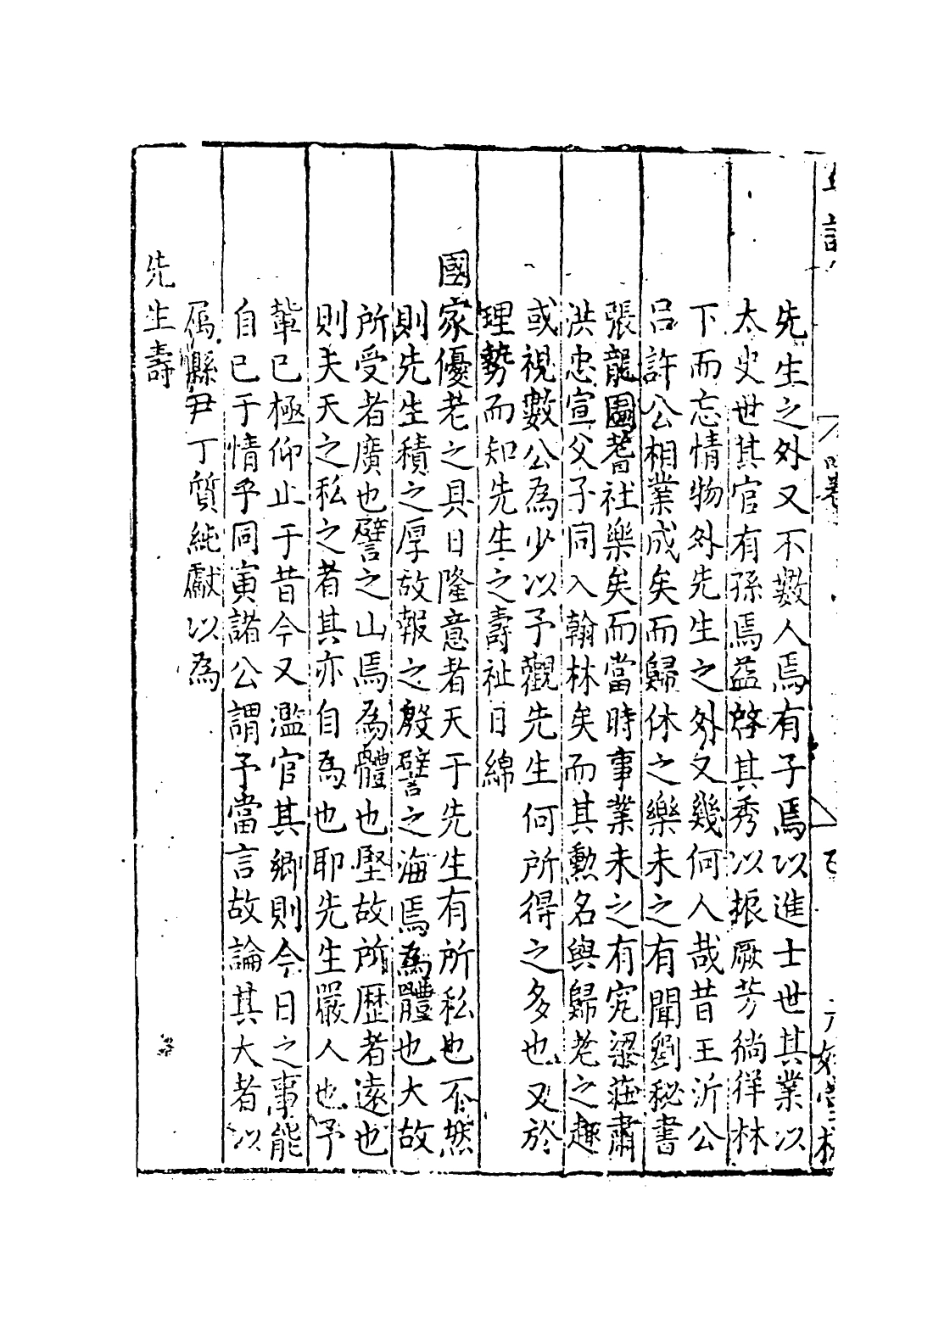 先生之外又不數人焉有子焉以進士世其業以
太史世其官有孫焉益啓其秀以振厥芳徜徉林
下而忘情物外先生之外又幾何人哉昔王沂公
呂許公相業成矣而歸休之樂未之有聞劉秘書
張龍圖耆社樂矣而當時事業未之有究梁莊肅
洪忠宣父子同入翰林矣而其勲名與歸老之趣
或視數公為少以予觀先生何所得之多也又於
理勢而知先生之壽祉日綿
國家優老之具日隆意者天于先生有所私也不然
則先生積之厚故報之殷譬之海焉為體也大故
所受者廣也譬之山焉為體也堅故所歴者遠也
則夫天之私之者其亦自為也耶先生嚴人也予
輩已極仰止于昔今又濫官其鄉則今日之事能
自已于情乎同寅諸公謂予當言故論其大者以
屬縣尹丁質純獻以為
先生壽